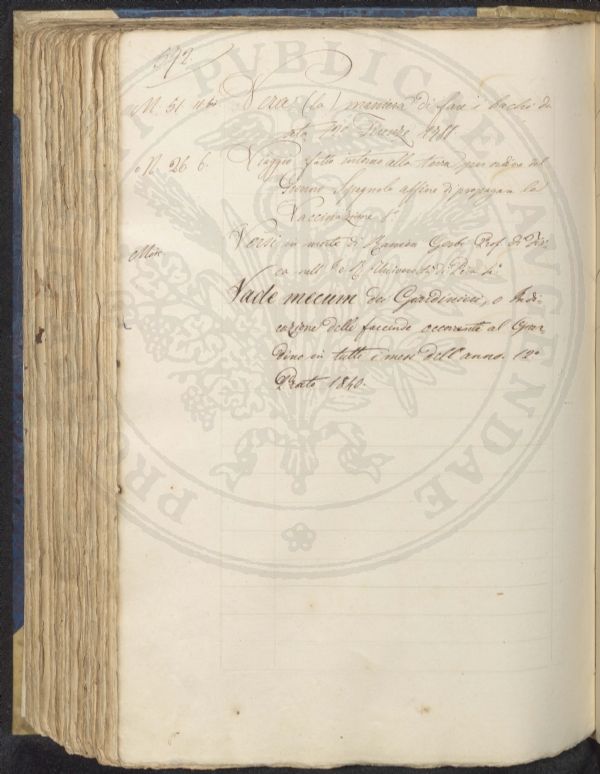 392
M. 51 Vera (la) maniera di fare i bachi da
seta Firenze
N 26 6. Viaggio fatto intorno alla terra per ordine del
Governo Spagnolo affine di propagare la
Vaccinazione
Misc Versi in morte di Ranieri Gerbi Prof. di Fisi-
ca nell' Università di Pisa
Vade mecum dei Giardinieri, o Indi-
cazione delle faccende occorrenti al Giar-
dino in tutti i mesi dell'anno. 12°
Prato 1840.
PUBLICAE
AUGENDAE